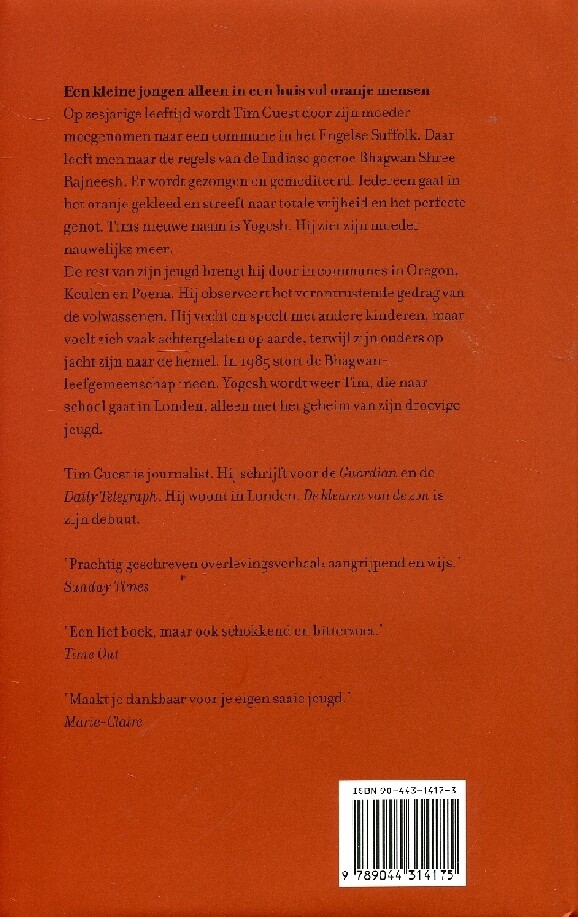 Een kleine jongen alleen in een huis vol oranje mensen
Op zesjarige leeftijd wordt Tim Guest door zijn moeder
meegenomen naar een commune in het Engelse Suffolk. Daar
leeft men naar de regels van de Indiase goeroe Bhagwan Shree
Rajneesh. Er wordt gezongen en gemediteerd. Iedereen gaat in
het oranje gekleed en streeft naar totale vrijheid en het perfecte
genot. Tims nieuwe naam is Yogesh. Hij ziet zijn moeder
nauwelijks meer.
De rest van zijn jeugd brengt hij door in communes in Oregon,
Keulen en Poena. Hij observeert het verontrustende gedrag van
de volwassenen. Hij vecht en speelt met andere kinderen, maar
voelt zich vaak achtergelaten op aarde, terwijl zijn ouders op
jacht zijn naar de hemel. In 1985 stort de Bhagwan-
leefgemeenschap ineen. Yogesh wordt weer Tim, die naar
school gaat in Londen, alleen met het geheim van zijn droevige
jeugd.
Tim Guest is journalist. Hij schrijft voor de Guardian en de
Daily Telegraph. Hij woont in Londen. De kleuren van de zon is
zijn debuut.
'Prachtig geschreven overlevingsverhaal: aangrijpend en wijs.'
Sunday Times
'Een lief boek, maar ook schokkend en bitterzoet.'
Time Out
'Maakt je dankbaar voor je eigen saaie jeugd.'
Marie-Claire
ISBN 90-443-1417-3
9 789044 314175